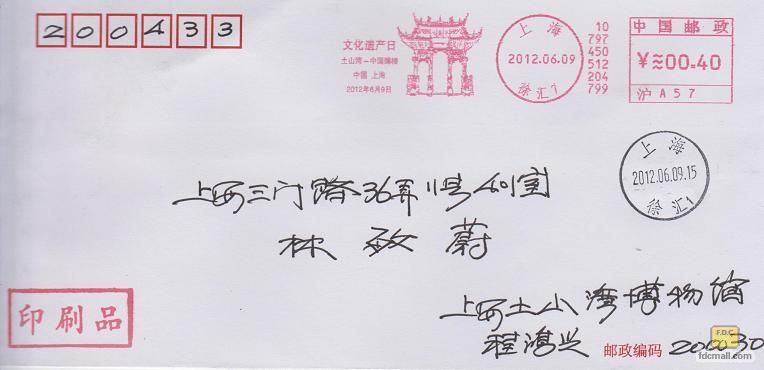 200433
文化遗产日
土山湾－中国牌楼
中国 上海
2012年6月9日
上海
2012.06.09
徐汇1
10
797
450
512
204
799
中国邮政
¥≈00.40
沪A57
上海
2012.06.09.15
徐汇1
上海三门路36弄1号401室
林敏蔚
印刷品
上海土山湾博物馆
程鸿兴
邮政编码 200030
F.D.C
fdcmall.com